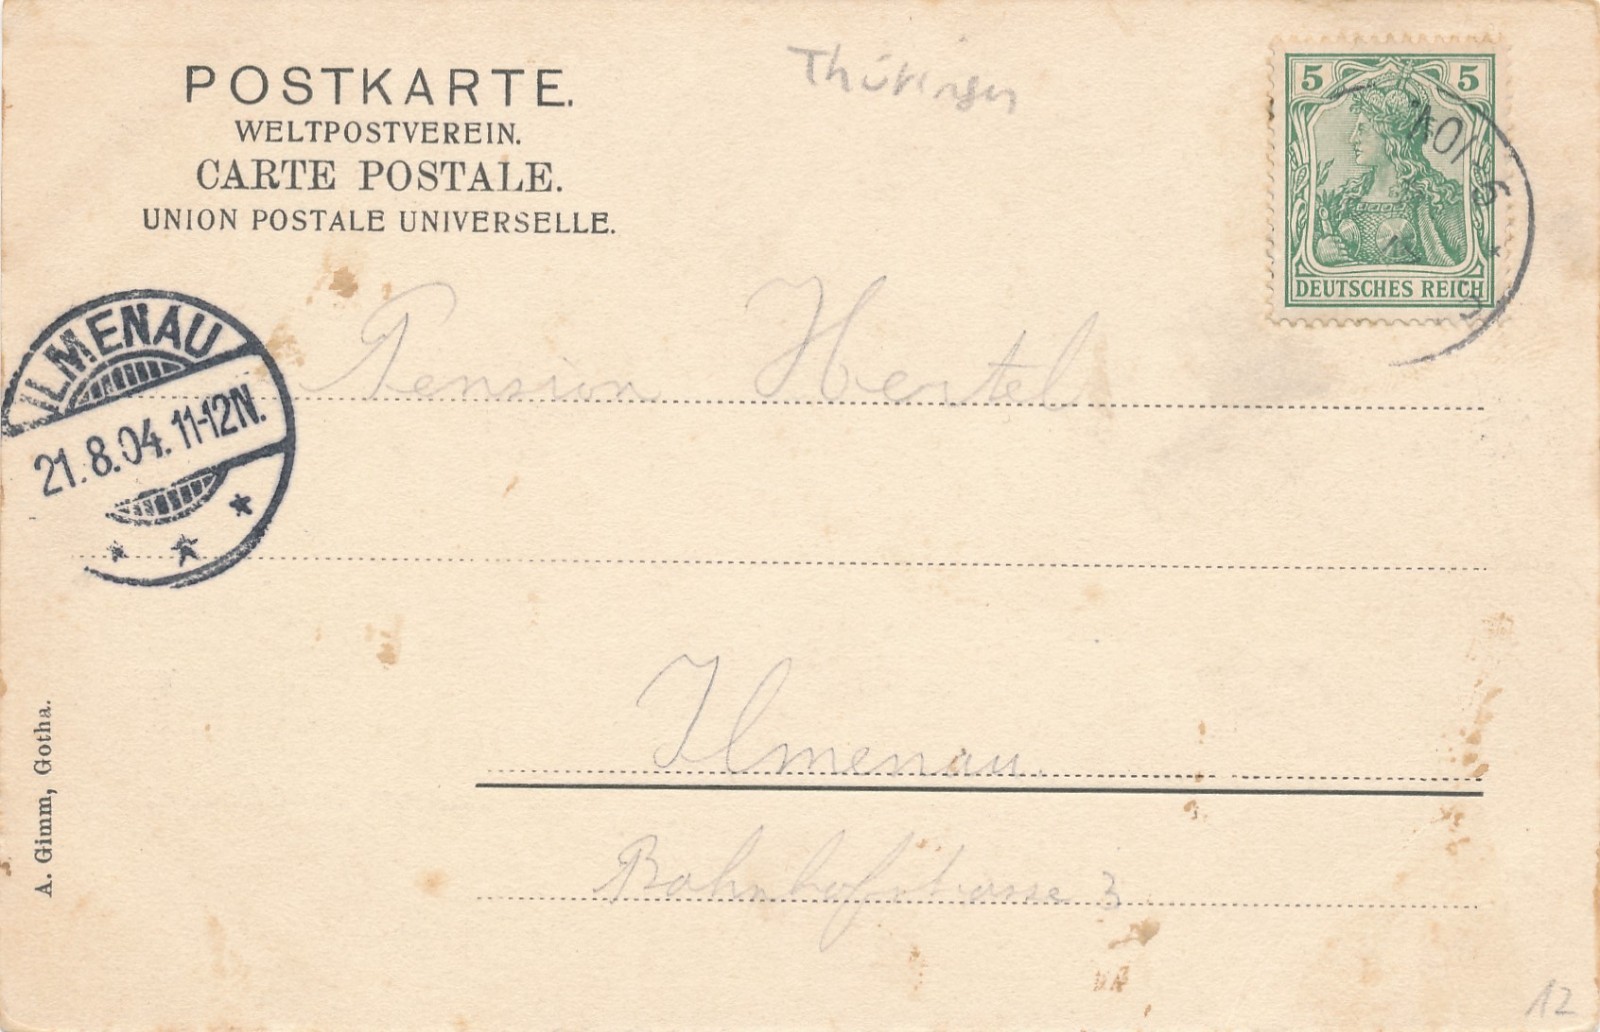 POSTKARTE.
WELTPOSTVEREIN.
CARTE POSTALE.
UNION POSTALE UNIVERSELLE.
Thüringen
5 5
DEUTSCHES REICH
ILMENAU
21.8.04. 11-12N.
Pension Hertel
Ilmenau.
Bahnhofstrasse 3
A. Gimm, Gotha.
12